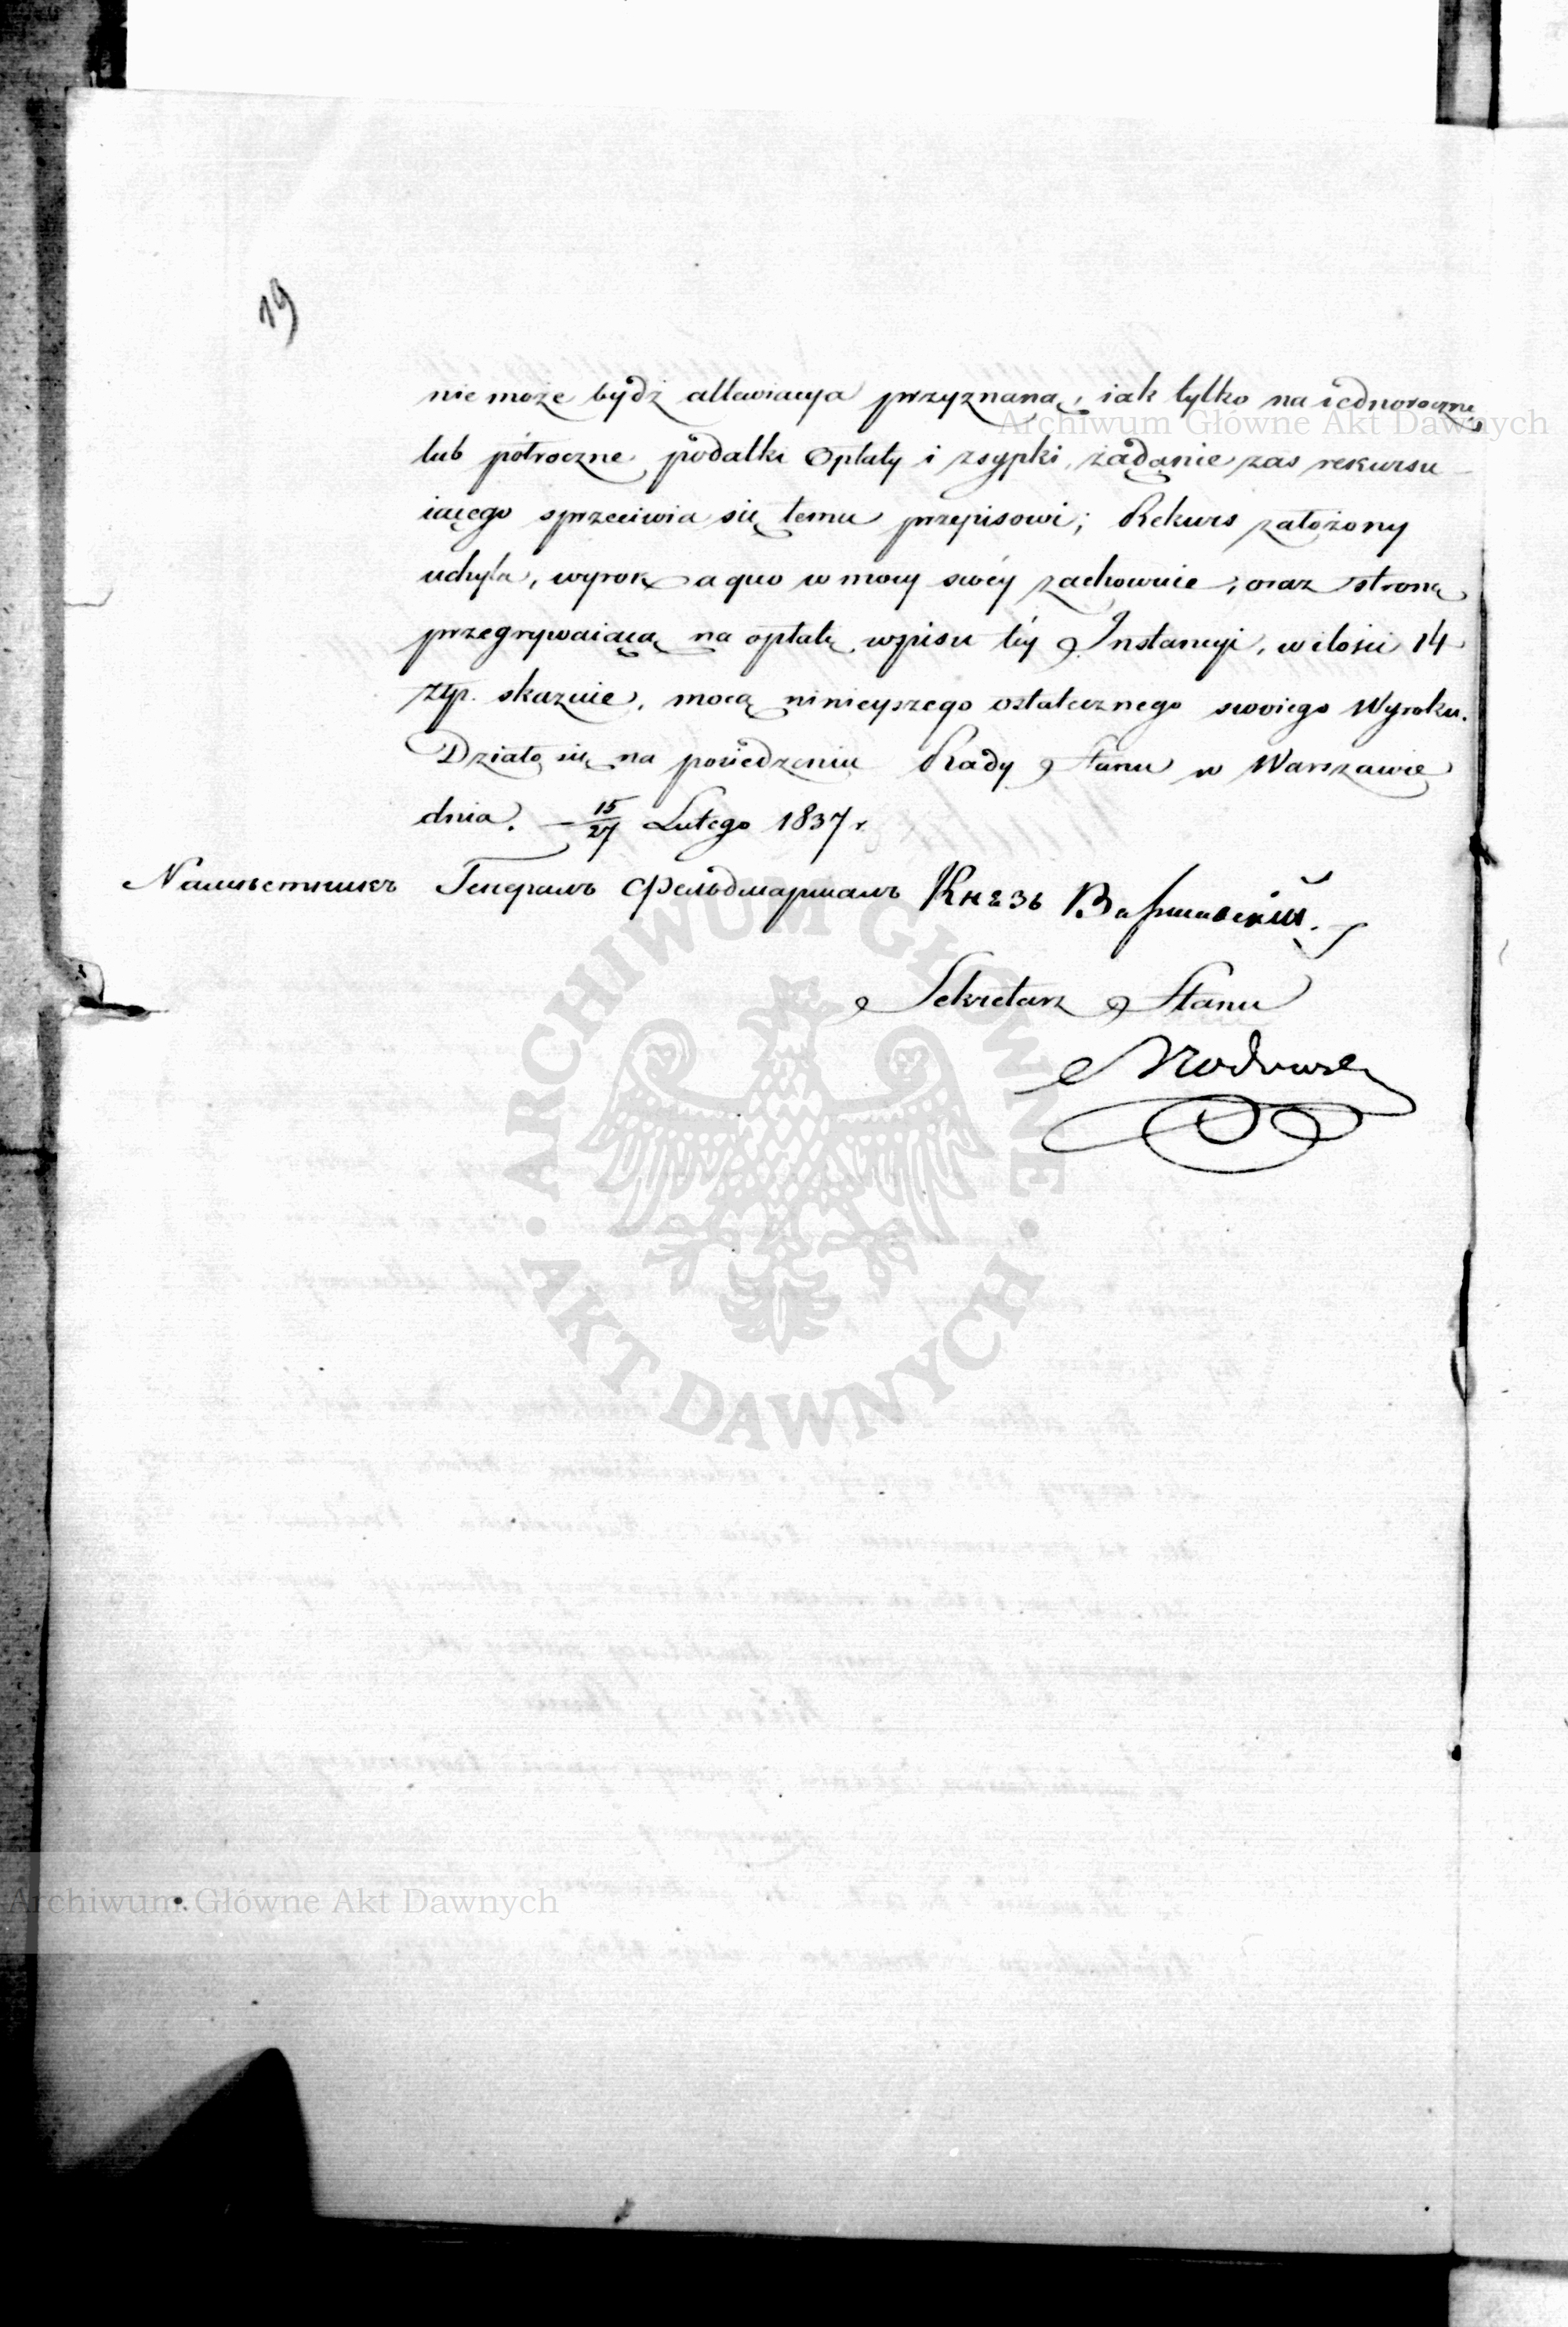 19
nie może bydź allewiacya przyznaną, iak tylko na iednoroczne
lub półroczne podatki opłaty i zsypki, żądanie zas rekursu
iącego sprzeciwia się temu przepisowi; Rekurs założony
uchyla, wyrok a quo w mocy swéy zachowuie; oraz stronę
przegrywaiącą na opłatę wpisu téy Instancyi, w ilości 14
złp. skazuie, mocą ninieyszego ostatecznego swoiego Wyroku.
Działo się na posiedzeniu Rady Stanu w Warszawie
dnia 15/27 Lutego 1837 r.
Намѣстникъ Генералъ Фельдмаршалъ Князь Варшавскій.
Sekretarz Stanu
Archiwum Główne Akt Dawnych
ARCHIWUM GŁÓWNE
AKT DAWNYCH
Archiwum Główne Akt Dawnych